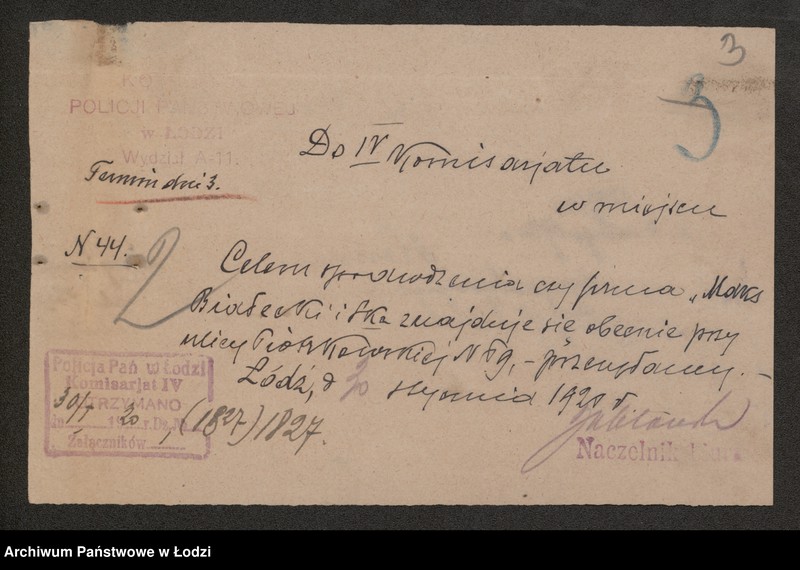 3
POLICJI PAŃSTWOWEJ
w ŁODZI
Wydział A-11.
Termin dni 3.
Do IV Komisarjatu
w miejscu
N 44.
Celem sprawdzenia czy firma „Maks
Białecki i Ska znajduje się obecnie przy
ulicy Piotrkowskiej N 59, - przesyłamy. -
Łódź, d 30 stycznia 1920 r
Policja Pań w Łodzi
Komisarjat IV
OTRZYMANO
30/I 1920 r. Dz. №
Załączników
(1827) 1827.
Naczelnik Biura
Archiwum Państwowe w Łodzi